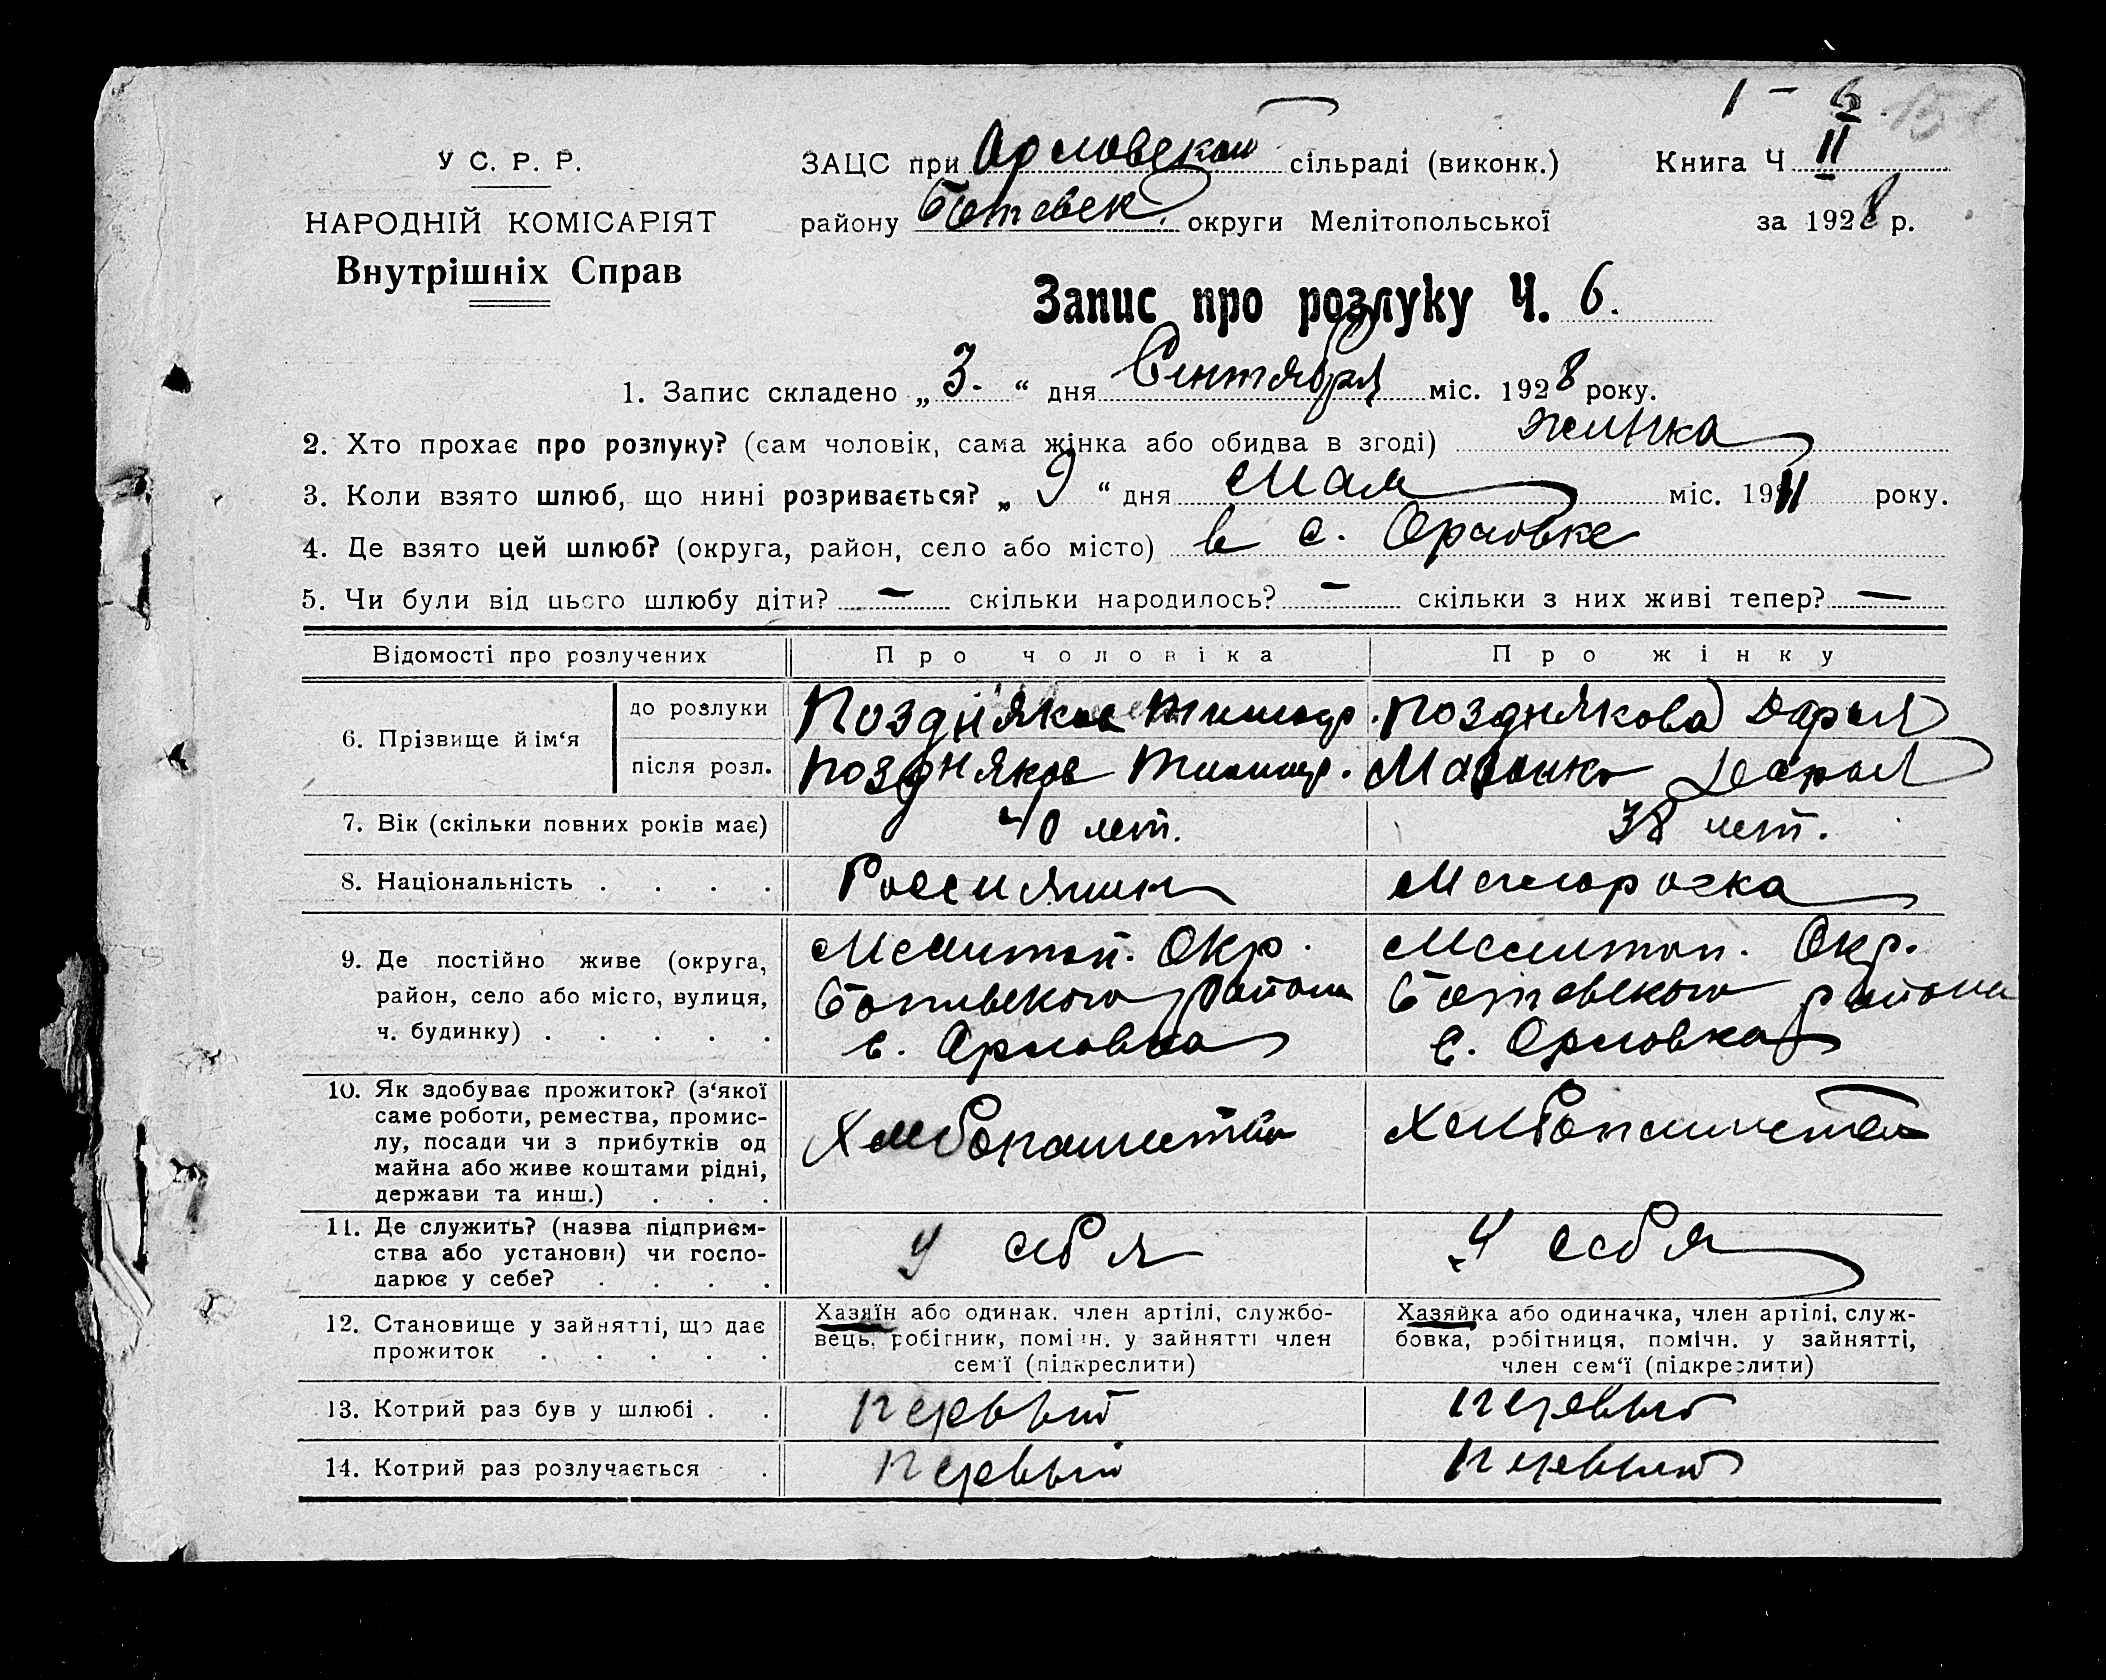 1 - 6
У С. Р. Р.
НАРОДНІЙ КОМІСАРІЯТ
Внутрішніх Справ
ЗАЦС при Орловской сільраді (виконк.)
Книга Ч II
району Ботевск. округи Мелітопольської
за 1928 р.
Запис про розлуку Ч. 6.
1. Запис складено „ 3. “ дня Сентября міс. 1928 року.
2. Хто прохає про розлуку? (сам чоловік, сама жінка або обидва в згоді) жинка
3. Коли взято шлюб, що нині розривається? „ 9 “ дня Мая міс. 1911 року.
4. Де взято цей шлюб? (округа, район, село або місто) в с. Орловке
5. Чи були від цього шлюбу діти? — скільки народилось? — скільки з них живі тепер? —
Відомості про розлучених
Про чоловіка
Про жінку
6. Прізвище й ім‘я
до розлуки
Поздняков Тимоф.
Позднякова Дарья
після розл.
Поздняков Тимоф.
Дарья
7. Вік (скільки повних років має)
40 лет.
38 лет.
8. Національність . . . .
Россиянин
Малороска
9. Де постійно живе (округа,
район, село або місто, вулиця,
ч. будинку) . . . . .
Мелитоп. Окр.
Ботевского района
с. Орловка
Мелитоп. Окр.
Ботевского района
с. Орловка
10. Як здобуває прожиток? (з‘якої
саме роботи, ремества, промис-
лу, посади чи з прибутків од
майна або живе коштами рідні,
держави та инш.) . . .
Хлебопашеством
Хлебопашеством
11. Де служить? (назва підприєм-
ства або установи) чи госпо-
дарює у себе? . . . .
У себя
У себя
12. Становище у зайнятті, що дає
прожиток . . . . .
Хазяїн або одинак, член артілі, службо-
вець, робітник, помічн. у зайнятті член
сем‘ї (підкреслити)
Хазяйка або одиначка, член артілі, служ-
бовка, робітниця, помічн. у зайнятті,
член сем‘ї (підкреслити)
13. Котрий раз був у шлюбі . .
первый
первый
14. Котрий раз розлучається .
первый
первый